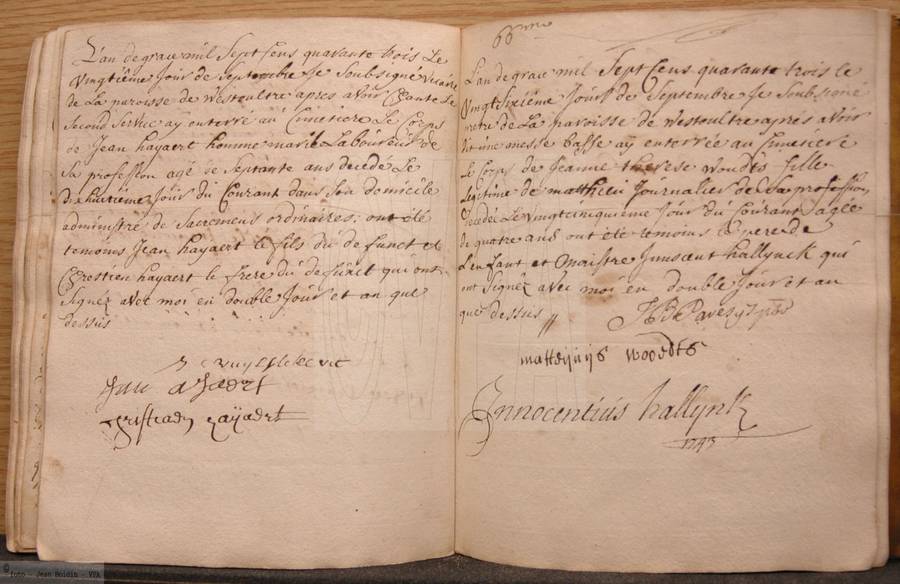 L'an de grace mil Sept Cens quarante trois Le
Vingtiême Jour de Septembre Je Soubsigné Vicaire
de La paroisse de Westoultre apres avoir Chanté Le
Second Service aÿ enterré au Cimetiere Le Corps
de Jean haÿaert homme marié Laboureur de
Sa profession agé de Septante ans decedé Le
dixhuitiême Joür du Courant dans Son domicile
administré de Sacremens ordinaires; ont été
temoins Jean haÿaert le fils du defunct et
Chrestien haÿaert le frere du defunct qui ont
Signéz avec moi en double Joür et an que
dessus
Jan
66me
L'an de grace mil Sept Cens quarante trois le
Vingt Sixiême Jour de Septembre Je Soubsigné
pretre de La paroisse de Westoultre aprés avoir
Dit une messe basse aÿ enterrée au Cimetiere
Le Corps de Jeanne therese Woudts fille
Legitime de matthieu Journalier de Sa profession
decedée Le Vingtcinquiême Jour du Courant agée
de quatre ans ont été temoins le pere de
L'enfant et maistre Innocent hallynck qui
ont Signéz avec moi en double Joür et an
que dessus //
matthyys woedts
Innocentius hallynck
1743
© foto - Jean Boidin - VVA